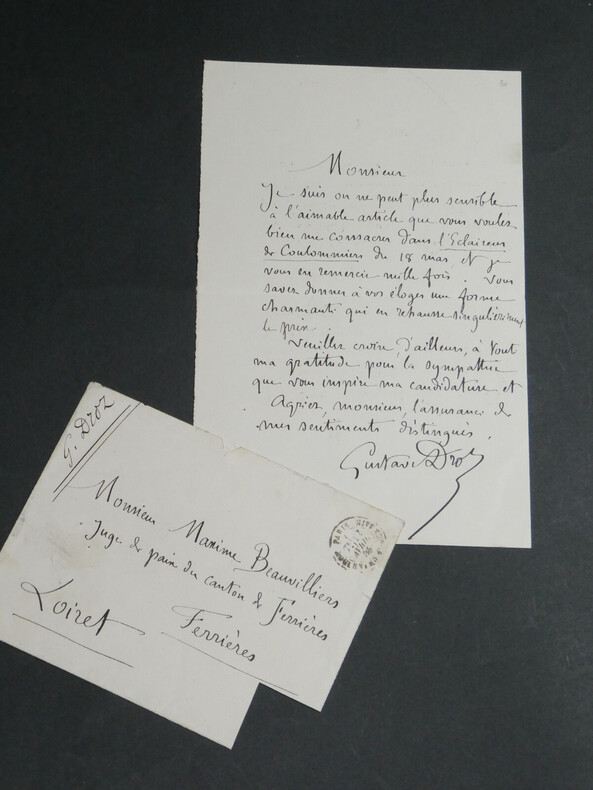 Monsieur
Je suis on ne peut plus sensible
à l'aimable article que vous voulez
bien me consacrer dans l'Eclaireur
de Coulommiers du 18 mars, et je
vous en remercie mille fois. Vous
savez donner à vos éloges une forme
charmante qui en rehausse singulièrement
le prix.
Veuillez croire, d'ailleurs, à tout
ma gratitude pour la sympathie
que vous inspire ma candidature et
Agréez, monsieur, l'assurance de
mes sentiments distingués.
Gustave Droz
G. Droz
Monsieur Maxime Beauvilliers
Juge de paix du canton de Ferrières
Ferrières
Loiret
PARIS